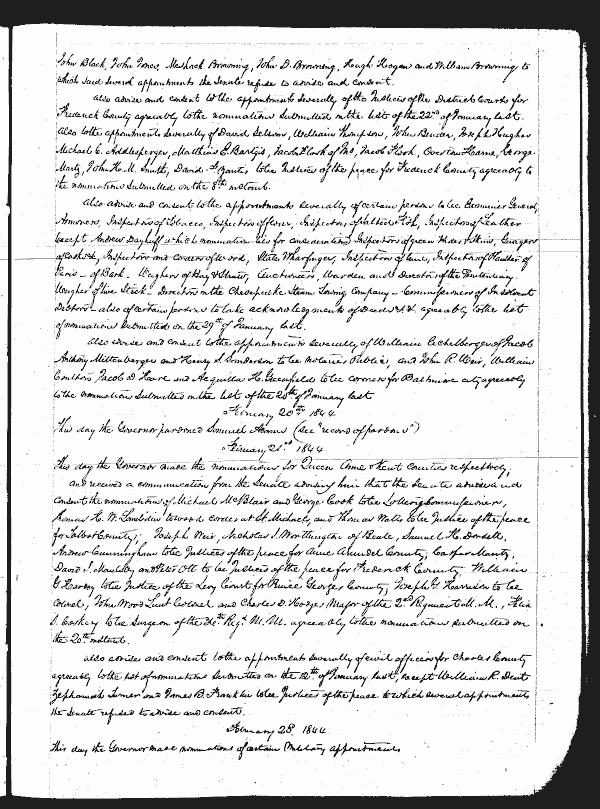 John Black, John Jones, Meshack Browning, John D. Browning, Hough Keegan and William Browning to
which said several appointments the Senate refuse to advise and consent.
also advise and consent to the appointments severally of the Justices of the District Courts for
Frederick County agreeably to the nominations submitted in the list of the 22nd of January last.
Also to the appointments severally of David William Thompson, John Joseph Hughes
Michael C. Addlesperger, Matthias E. Bartgis, Jacob of Jno, Jacob Root, Overton Harne, George
Martz, John H. M. Smith, David to be Justices of the peace for Frederick County agreeably to
the nominations submitted on the 8th instant.
also advise and consent to the appointments severally of certain persons to be Examiner General,
Armorers, Inspectors of Tobacco, Inspectors of flour, Inspectors of salted Fish, Inspectors of Leather
except Andrew Dayhuff which nomination lies for consideration, Inspectors of green Hides & Skins, Guagers
of casks, Inspectors and corders of wood, State Wharfinger, Inspectors of Lime, Inspector of Plaster of
Paris - of Bark. Weighers of Hay & Straw, Auctioneers, Warden and Directors of the Penitentiary
Weigher of live Stock. Directors in the Chesapeake Steam Towing Company - Commissioners of Insolvent
Debtors - also of certain persons to take acknowledgments of deeds &c. agreeably to the list
of nominations submitted on the 29th of January last.
also advise and consent to the appointments severally of William Eichelberger of Jacob
Anthony Miltenberger and Henry S. Sanderson to be notaries Public, and John R. Weir, William
Coulton, Jacob D. Hare and Acquilla H. Greenfield to be corners for Baltimore city agreeably
to the nominations submitted in the list of the 26th of January last
February 20th 1844.
This day the Governor pardoned Samuel (see "record of pardons")
February 21st 1844
This day the Governor made the nominations for Queen Anne & Kent counties respectively,
and received a communication from the Senate advising him that the senate advise and
consent the nominations of Michael McBlair and George Cook to be Lottery Commissioners,
Thomas H. W. Lambdin to wood corder at St. Michaels, and Thomas Watts to be Justice of the peace
for Talbot County; Joseph Weir, Nicholas I. Worthington of Beale, Samuel H. Dorsett,
Andrew Cunningham to be Justices of the peace for Anne Arundel County, Caspar Mantz,
David J. Maulsby and Peter Ott to be Justices of the peace for Frederick County. William
G. Hardey to be Justice of the Levy Court for Prince Georges County, Joseph G. Harrison to be
Colonel, John Wood Lieut Colonel and Charles D. Hodges Major of the 2nd Regiment M. M.,
S. to be Surgeon of the Regt M. M. agreeably to the nominations submitted on
the 20th instant.
also advise and consent to the appointments severally of civil officers for Charles County
agreeably to the list of nominations submitted on the 12th of January last, except William R. Dent
Zephaniah Turner and James B. Franklin to be Justices of the peace to which several appointments
the Senate refused to advise and consent.
February 28, 1844.
This day the Governor made nominations of certain Military appointments